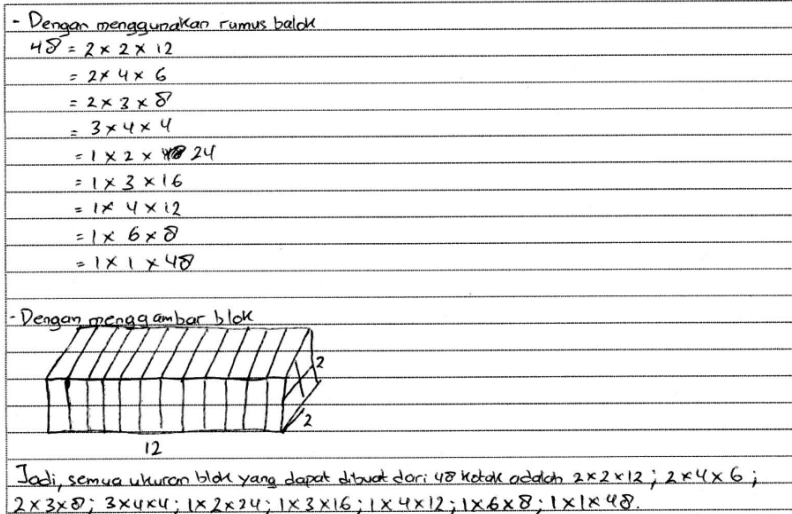 - Dengan menggunakan rumus balok
48 = 2 × 2 × 12
= 2 × 4 × 6
= 2 × 3 × 8
= 3 × 4 × 4
= 1 × 2 × 24
= 1 × 3 × 16
= 1 × 4 × 12
= 1 × 6 × 8
= 1 × 1 × 48
- Dengan menggambar blok
2
2
12
Jadi, semua ukuran blok yang dapat dibuat dari 48 kotak adalah 2×2×12; 2×4×6;
2×3×8; 3×4×4; 1×2×24; 1×3×16; 1×4×12; 1×6×8; 1×1×48.